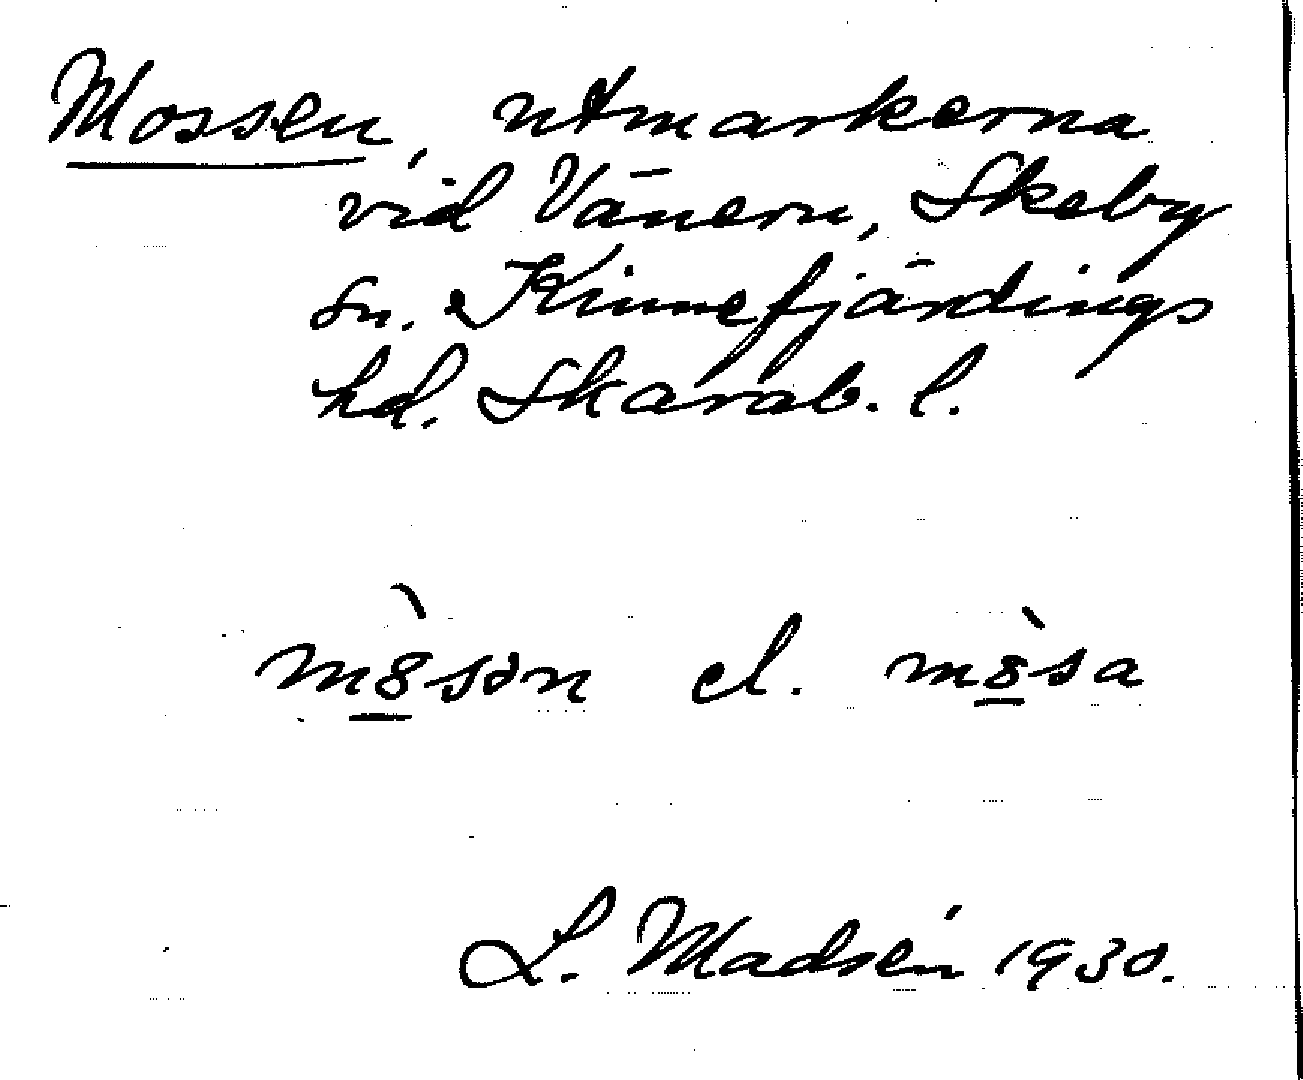 Mossen, utmarkerna
vid Vänern, Skeby
sn. Kinnefjärdings
hd. Skarab. l.
el.
L. Madsén 1930.